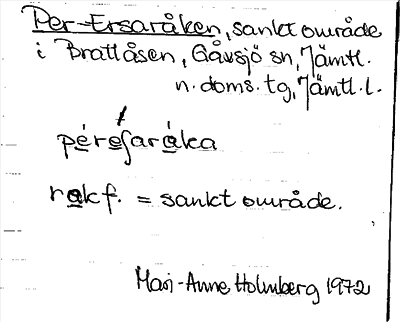 Per-Ersaråken, sankt område
i Brattåsen, Gåvsjö sn, Jämtl.
n. doms. tg, Jämtl. l.
péreʃaráka
rak f. = sankt område.
Mari-Anne Holmberg 1972